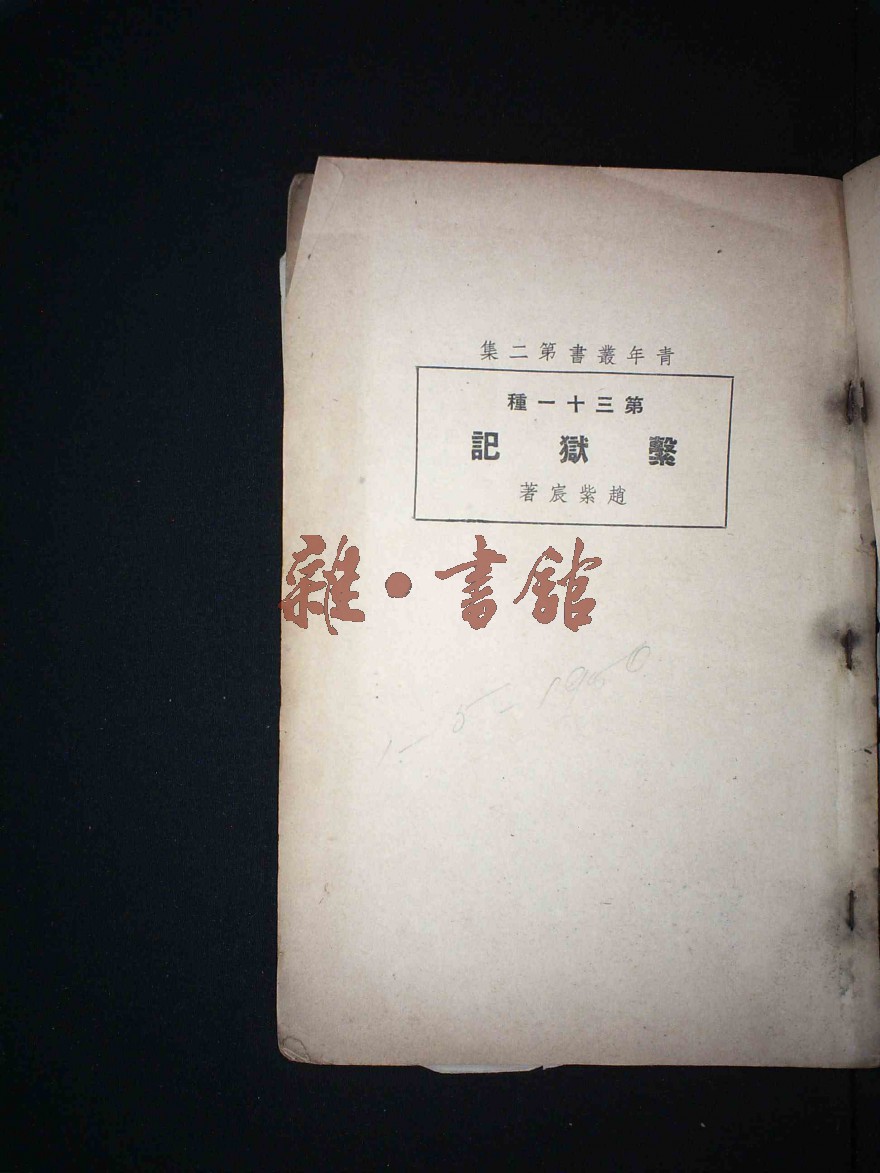 青年叢書第二集
第三十一種
繫獄記
趙紫宸著
雜·書館
1-5-1950